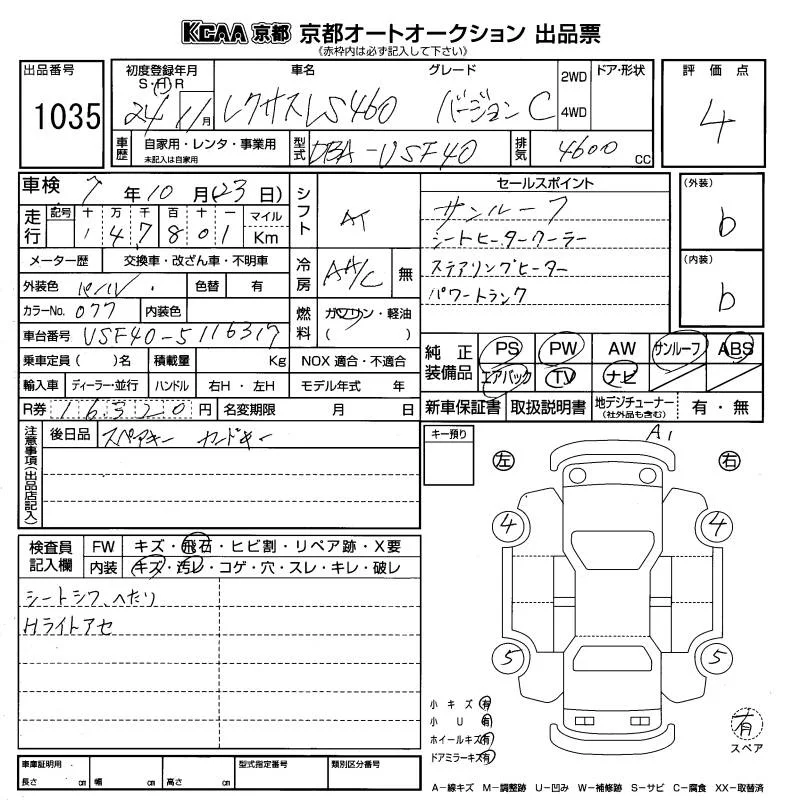 KCAA 京都 京都オートオークション 出品票
《赤枠内は必ず記入して下さい》
出品番号 1035
初度登録年月 S・H・R 24年 11月
車名 レクサスLS460
グレード バージョンC
2WD 4WD
ドア・形状
評価点 4
車歴 自家用・レンタ・事業用 未記入は自家用
型式 DBA-USF40
排気 4600 CC
車検 7年10月(23日)
走行 記号 十 万 千 百 十 一 マイル Km
1 4 7 8 0 1
シフト AT
セールスポイント
サンルーフ
シートヒータークーラー
ステアリングヒーター
パワートランク
(外装) b
(内装) b
メーター歴 交換車・改ざん車・不明車
冷房 AA/C 無
外装色 パール 色替 有
カラーNo. 077 内装色
燃料 ガソリン・軽油 ( )
車台番号 USF40-5116317
乗車定員 ( )名 積載量 Kg NOX 適合・不適合
輸入車 ディーラー・並行 ハンドル 右H・左H モデル年式 年
R券 16320円 名変期限 月 日
純正装備品 PS PW AW サンルーフ ABS
エアバック TV ナビ
新車保証書 取扱説明書 地デジチューナー (社外品も含む) 有・無
注意事項(出品店記入)
後日品 スペアキー カードキー
キー預り
A1
左 右
4 4
5 5
検査員記入欄 FW キズ・飛石・ヒビ割・リペア跡・X要
内装 キズ・汚レ・コゲ・穴・スレ・キレ・破レ
シートシワ、へたり
Hライトアセ
小キズ 有
小U 有
ホイールキズ 有
ドアミラーキズ 有
有 スペア
車庫証明用 長さ cm 幅 cm 高さ cm 型式指定番号 類別区分番号
A-線キズ M-調整跡 U-凹み W-補修跡 S-サビ C-腐食 XX-取替済